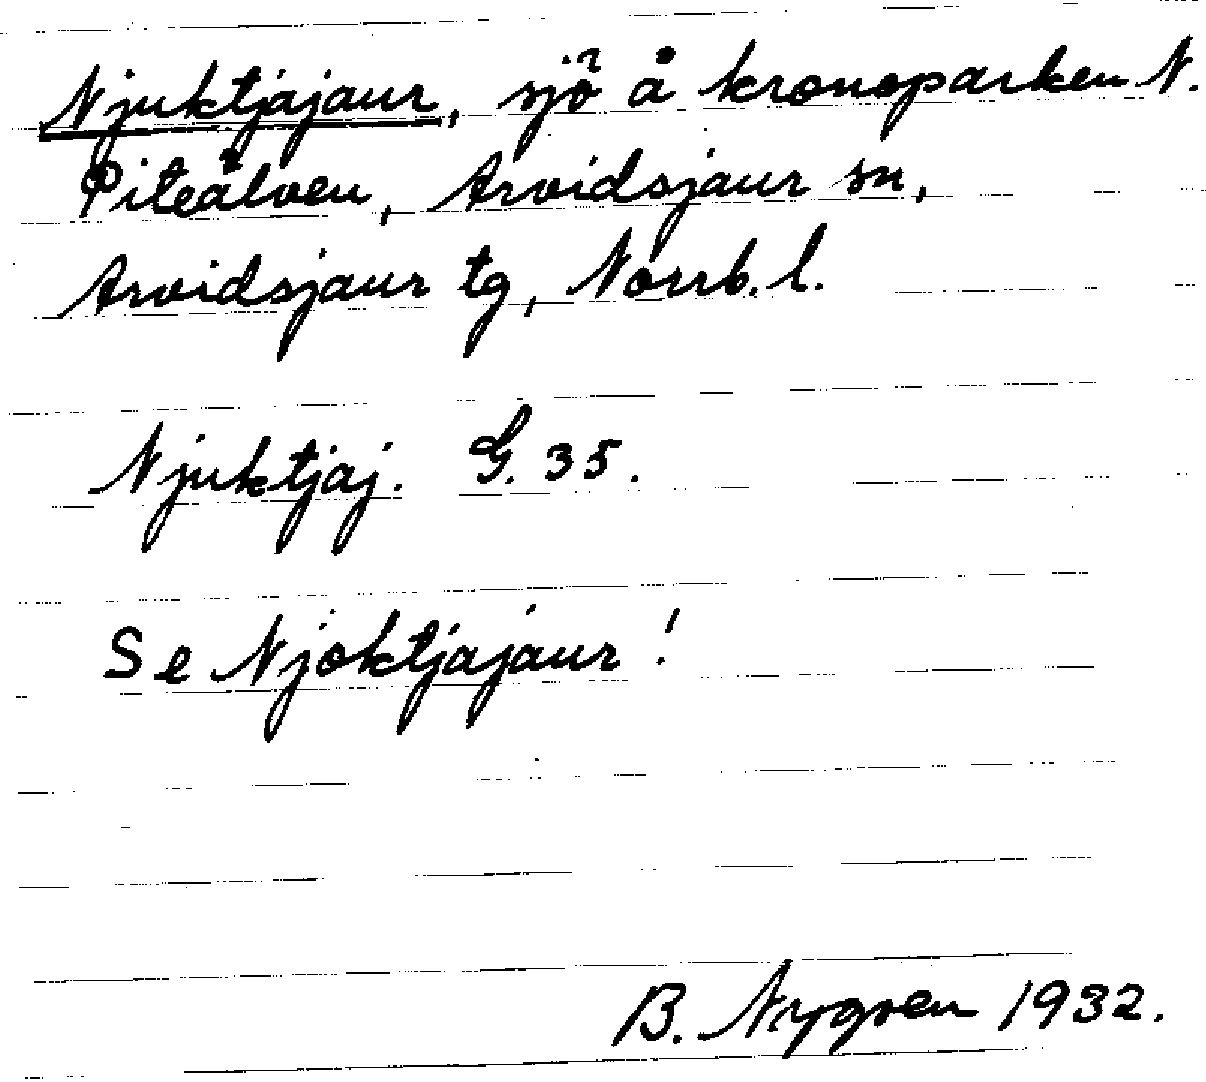 Njuktjajaur, sjö å kronoparken N.
Piteälven, Arvidsjaur sn,
Arvidsjaur tg, Norrb. l.
Njuktjaj. G. 35.
Se Njoktjajaur!
B. Nygren 1932.